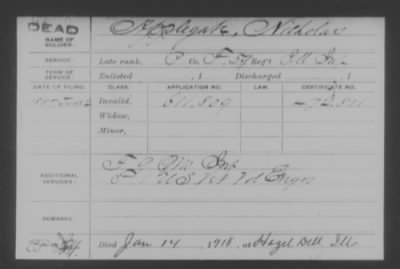 DEAD
NAME OF SOLDIER:
Applegate, Nicholas
SERVICE:
Late rank, P Co. F, 59 Reg't Ill Inf
TERM OF SERVICE:
Enlisted , 1 Discharged , 1
DATE OF FILING. CLASS. APPLICATION NO. LAW. CERTIFICATE NO.
Invalid, 611.809
Widow,
Minor,
ADDITIONAL SERVICES:
F 9 Mo Inf
U S Vet Vol Engrs
REMARKS:
Died Jan 14, 1918, at Hazel Dell, Ills